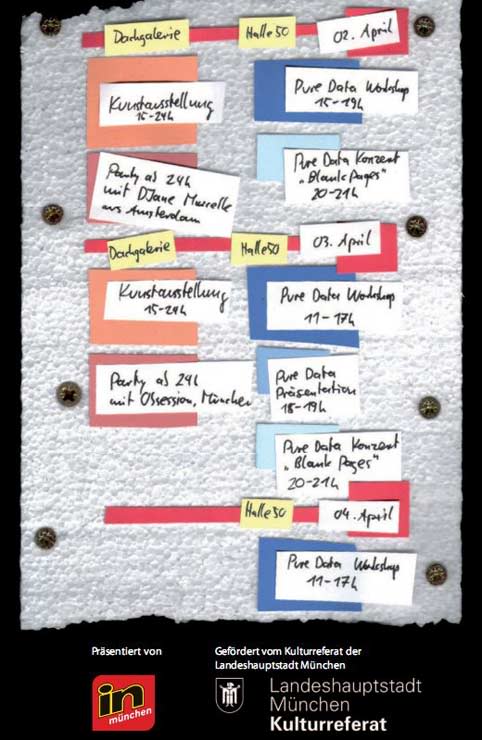 Dachgalerie
Halle 50
02. April
Kunstausstellung
15-24h
Pure Data Workshop
15-19h
Party ab 24h
mit DJane Marcelle
aus Amsterdam
Pure Data Konzert
„Blank Pages"
20-21h
Dachgalerie
Halle 50
03. April
Kunstausstellung
15-24h
Pure Data Workshop
11-17h
Party ab 24h
mit Obsession, München
Pure Data
Präsentation
18-19h
Pure Data Konzert
„Blank Pages"
20-21h
Halle 50
04. April
Pure Data Workshop
11-17h
Präsentiert von
in
münchen
Gefördert vom Kulturreferat der
Landeshauptstadt München
Landeshauptstadt
München
Kulturreferat